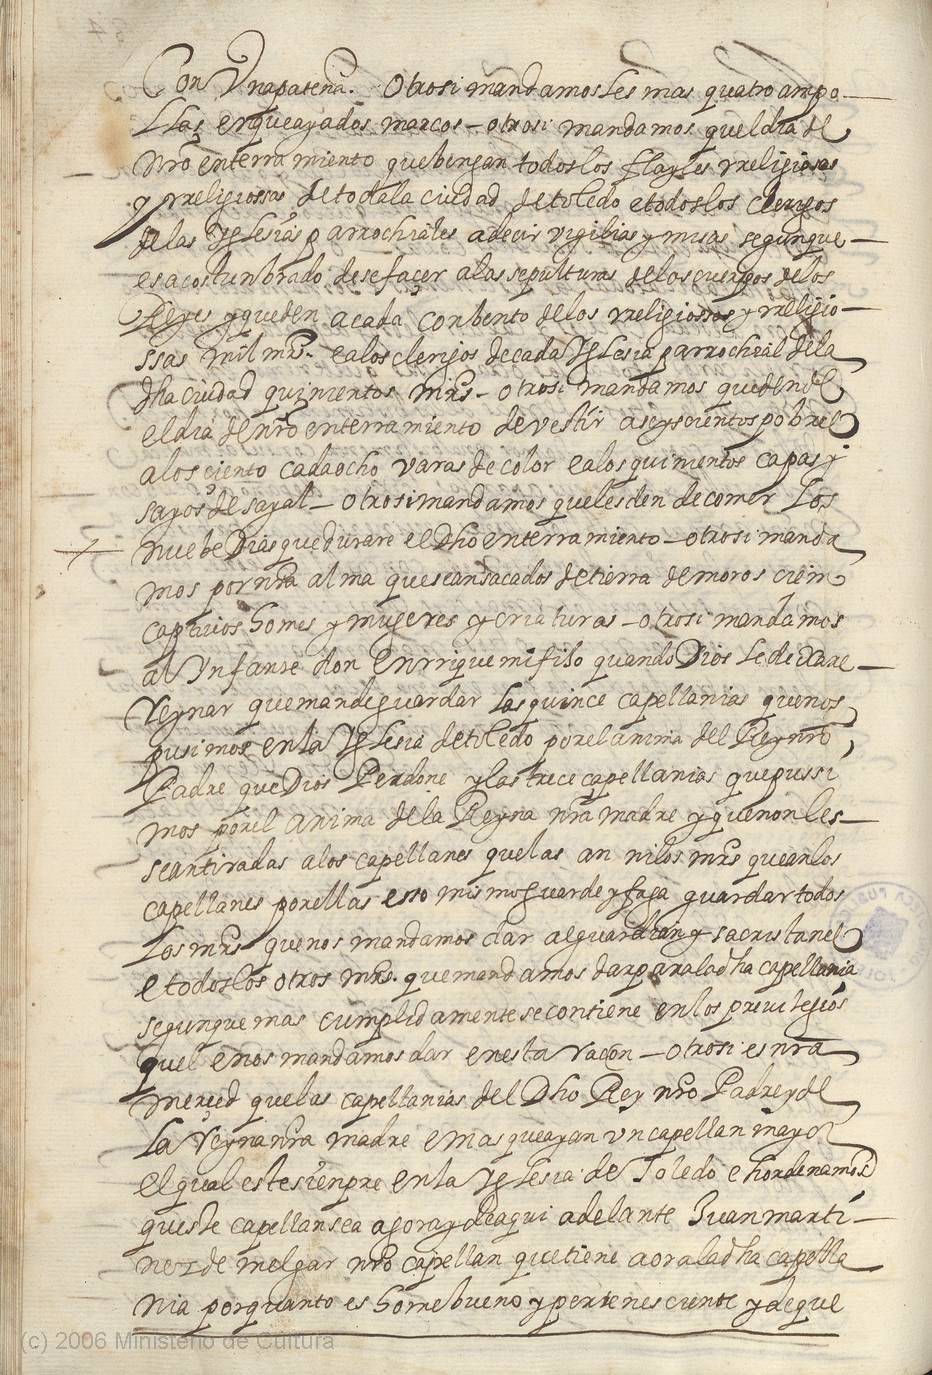 Con Vna patena. Otrosi mandamosles mas quatro ampo
llas enque ayados marcos - otrosi mandamos quel dia de
nro enterramiento que bengan todos los flayles rreligiosos
y rreligiossas detodala ciudad detoledo etodoslos clerigos
delas Yglesias parrochiales adecir vigilias y misas segun que
es acostunbrado desefaçer alas sepulturas delos cuerpos delos
Reyes y queden acada conbento delos rreligiossos y rreligio
ssas mil mrs. ealos clerigos decada Yglesia parrochial dela
dha ciudad quinientos mrs - otrosi mandamos queden
el dia de nro enterramiento devestir aseyscientos pobres
alos çiento cadaocho varas de color ealos quinientos capas y
sayos de sayal - otrosi mandamos quelesden decomer Los
nuebe Dias quedurare el Dho enterramiento - otrosi manda
mos por nra alma que sean sacados detierra demoros cien
captivos homes y mugeres y criaturas - otrosi mandamos
al Ynfante don Enrrique mi fijo quando Dios le dexare
Reynar que mande guardar las quince capellanias que nos
pusimos enla Yglesia detoledo porel anima del Rey nro
Padre que Dios Perdone y las trece capellanias que pussi
mos porel anima dela Reyna nra madre y quenonles
seantiradas alos capellanes quelas an nilos mrs que anlos
capellanes porellas esso mismo guarde y faga guardar todos
los mrs quenos mandamos dar alguardian y sacristanes
etodoslos otros mrs. que mandamos dar paraladha capellania
segunque mas cumplidamente se contiene enlos previlegios
quel enos mandamos dar enesta raçon - otrosi es nra
merced quelas capellanias del Dho Rey nro Padre y de
la Reyna nra madre emas que ayan vn capellan mayor
el qual este sienpre enla Yglesia de Toledo e hordenamos
queste capellan sea agora y deaqui adelante Juan marti
nez de melgar nro capellan que tiene aora ladha capella
nia porquanto es home bueno y perteneciente y de que
(c) 2006 Ministerio de Cultura